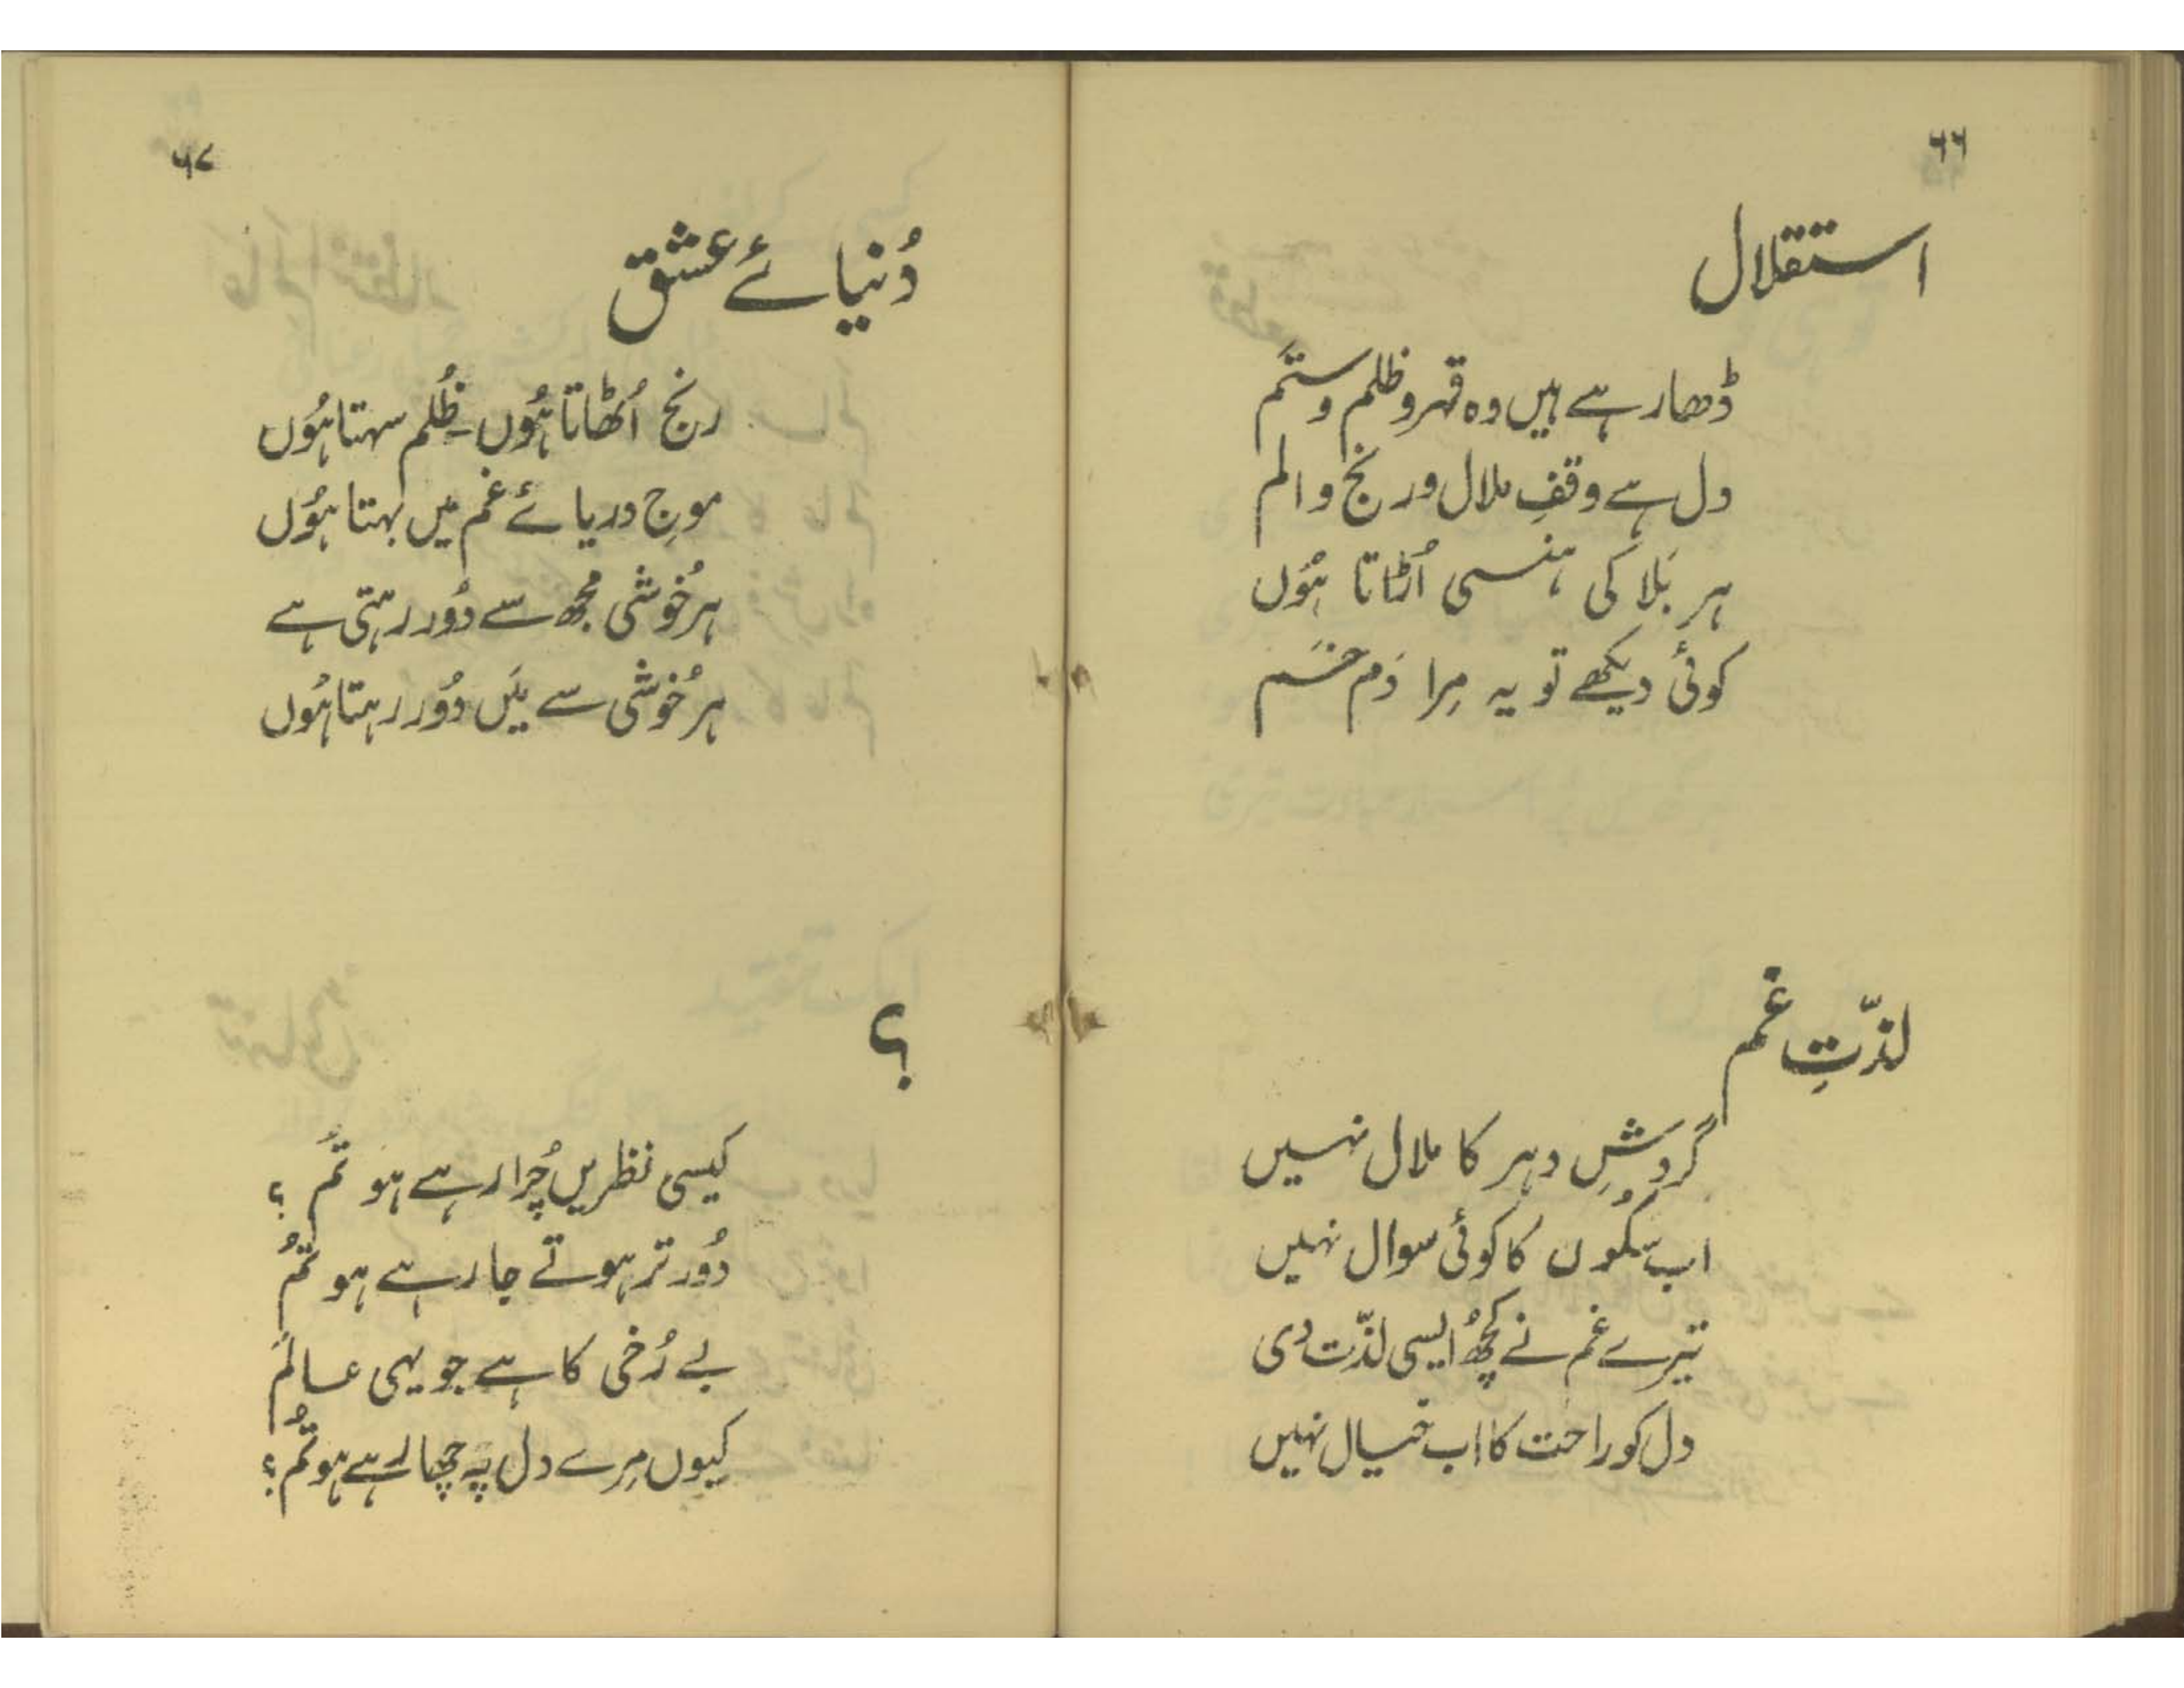 ۶۶
استقلال
ڈھا رہے ہیں وہ قہر و ظلم و ستم
دل ہے وقفِ ملال و رنج و الم
ہر بَلا کی ہنسی اُڑاتا ہُوں
کوئی دیکھے تو یہ مِرا دَم خَم
لذّتِ غم
گردشِ دہر کا ملال نہیں
اب سُکوں کا کوئی سوال نہیں
تیرے غم نے کچھُ ایسی لذّت دی
دل کو راحت کا اب خیال نہیں
۶۷
دُنیائے عشق
رنج اُٹھاتا ہُوں ظُلم سہتا ہُوں
موجِ دریائے غم میں بہتا ہُوں
ہر خُوشی مُجھ سے دُور رہتی ہے
ہر خُوشی سے مَیں دُور رہتا ہُوں
؟
کیسی نظریں چُرا رہے ہو تم ؟
دُور تر ہوتے جا رہے ہو تُم
بے رُخی کا ہے جو یہی عالَم
کیوں مِرے دل پہ چھا رہے ہو تُم ؟